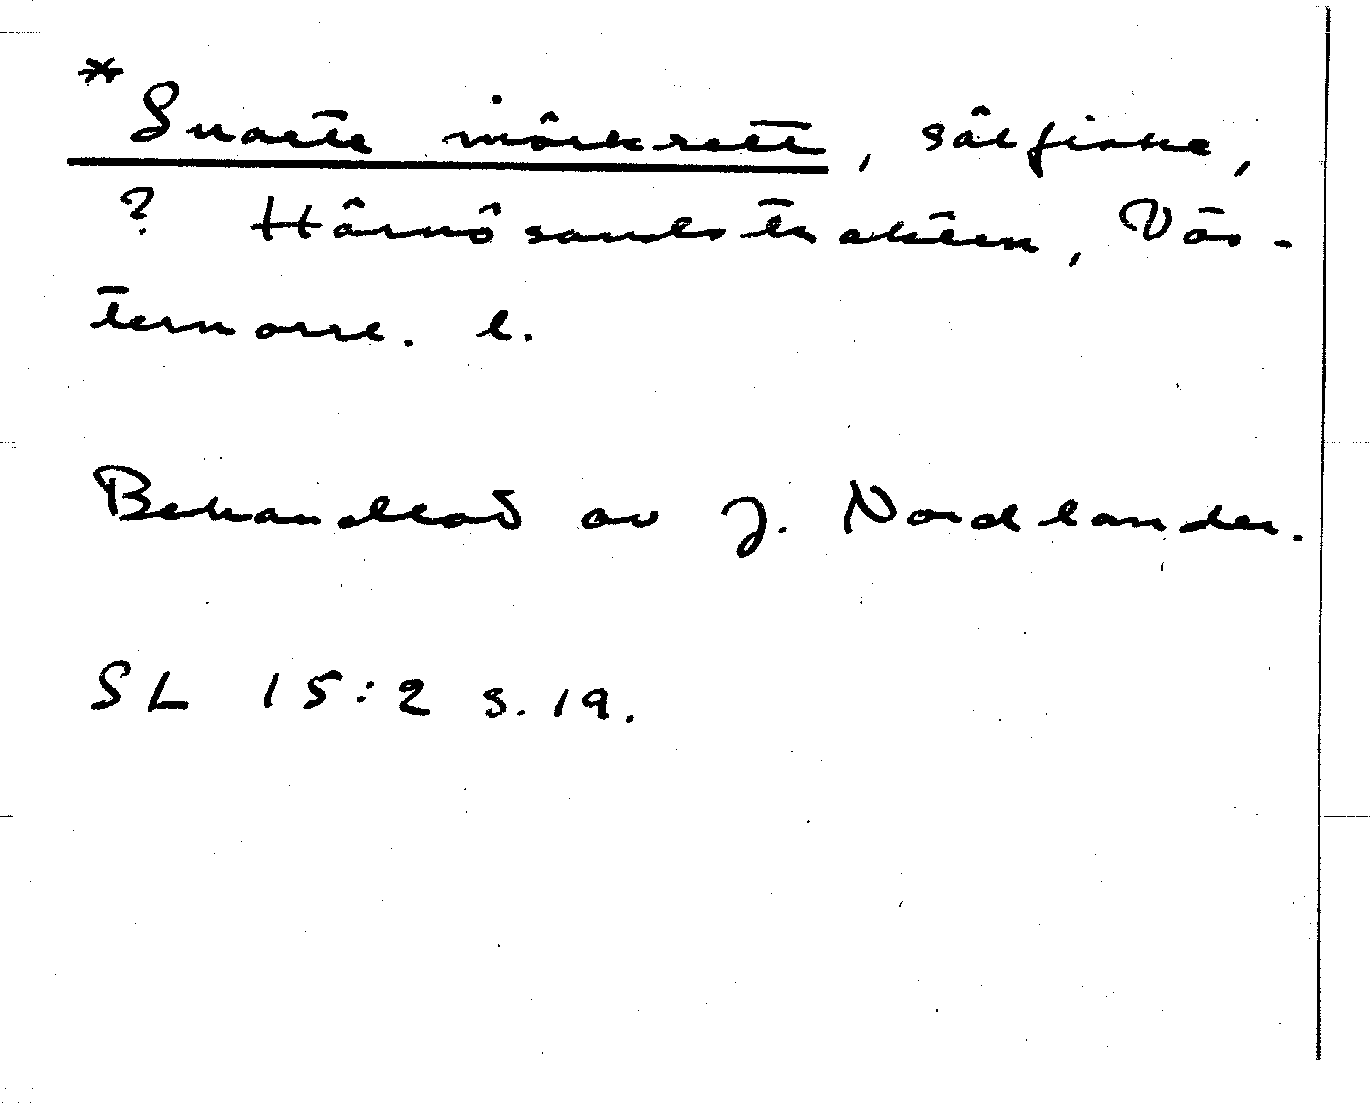 *Svarte mörkrett, sälfiske,
? Härnösandstrakten, Väs-
ternorrl. l.
Behandlad av J. Nordlander.
SL 15:2 s. 19.